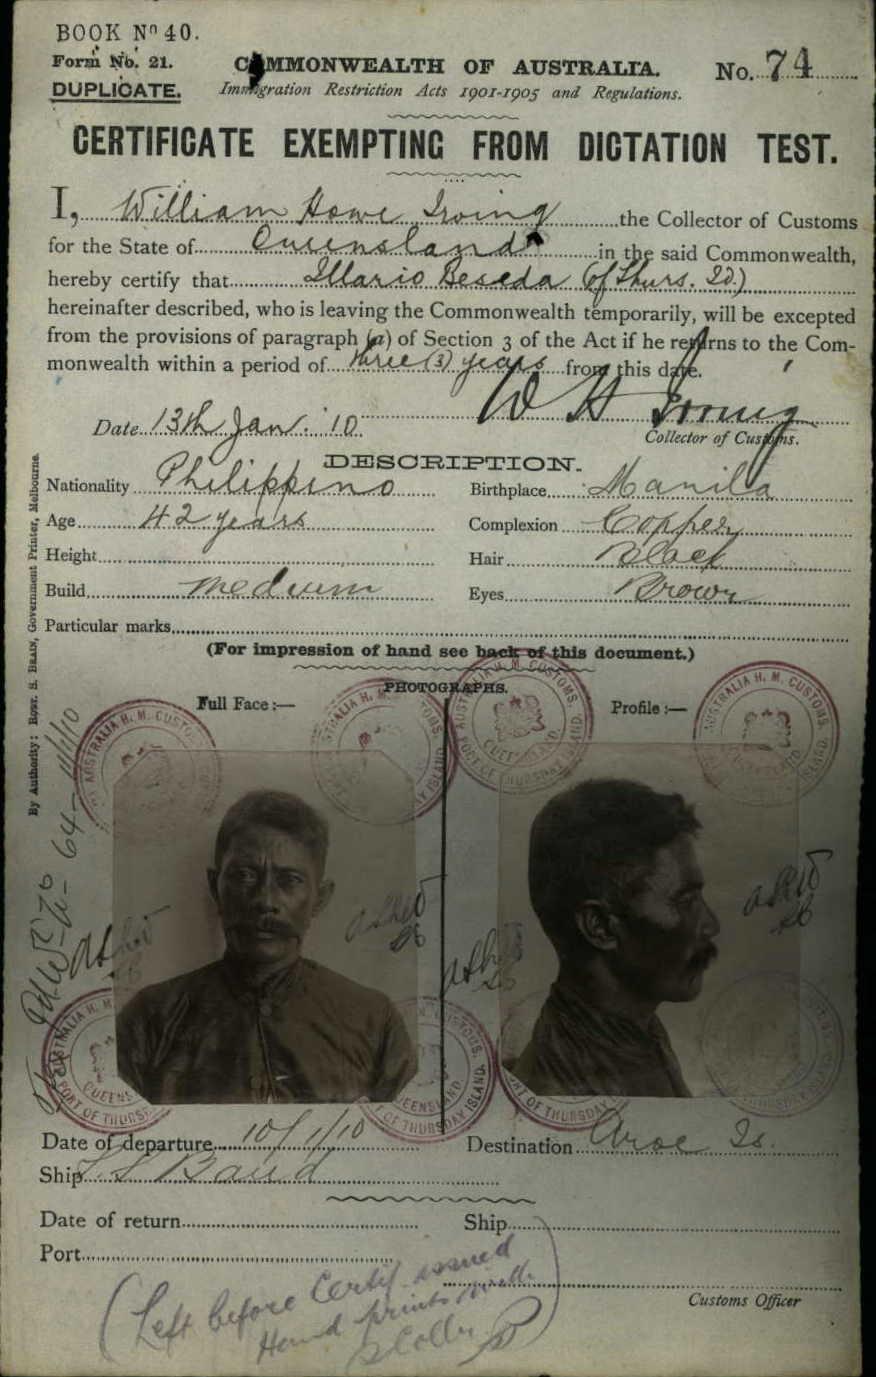 BOOK Nº 40.
Form No. 21.
DUPLICATE.
COMMONWEALTH OF AUSTRALIA.
Immigration Restriction Acts 1901-1905 and Regulations.
No. 74
CERTIFICATE EXEMPTING FROM DICTATION TEST.
I, William Howe Irving the Collector of Customs
for the State of Queensland in the said Commonwealth,
hereby certify that Illario Beseda (of Thurs. Id.)
hereinafter described, who is leaving the Commonwealth temporarily, will be excepted
from the provisions of paragraph (a) of Section 3 of the Act if he returns to the Com-
monwealth within a period of three (3) years from this date.
W H Irving
Date 13th Jan. '10
Collector of Customs.
DESCRIPTION.
Nationality Philippino
Birthplace Manila
Age 42 years
Complexion Copper
Height
Hair Black
Build medium
Eyes Brown
Particular marks
(For impression of hand see back of this document.)
PHOTOGRAPHS.
Full Face :—
Profile :—
AUSTRALIA H. M. CUSTOMS.
QUEENSLAND
PORT OF THURSDAY ISLAND.
By Authority: ROBT. S. BRAIN, Government Printer, Melbourne.
Date of departure 10/1/10
Destination Aroe Is.
Ship S.S Baud
Date of return
Ship
Port
Customs Officer
(Left before Certif issued
Hand prints